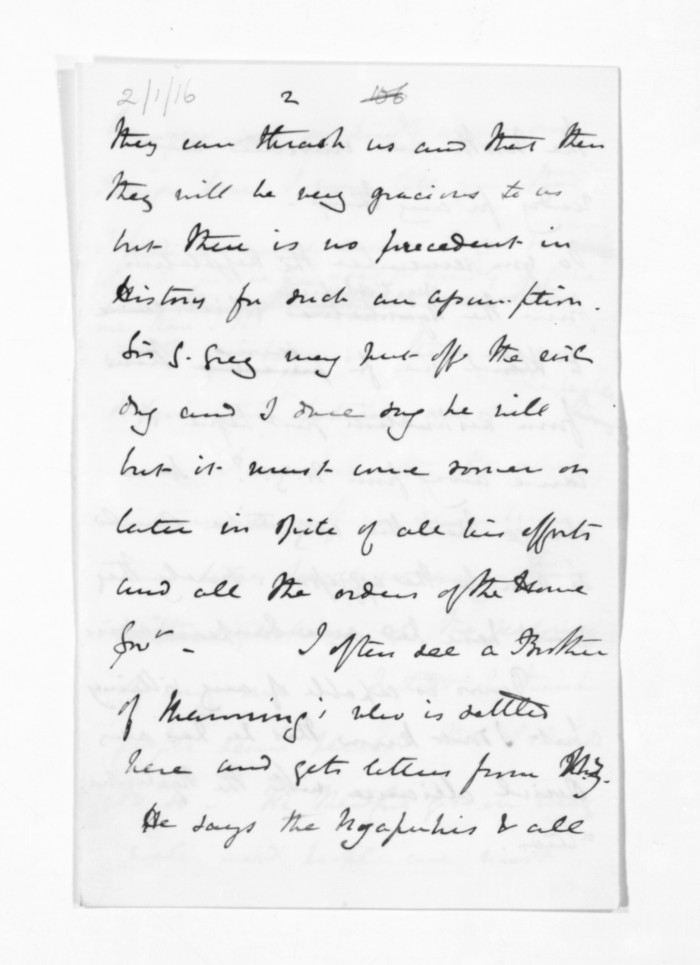 2/1/16 2 106
they can thrash us and that then
they will be very gracious to us
but there is no precedent in
History for such an assumption.
Sir G. Grey may put off the evil
day and I dare say he will
but it must come sooner or
later in spite of all his efforts
and all the orders of the Home
Govt - I often see a Brother
of Manning's who is settled
here and gets letters from N.Z.
He says the Ngapuhis & all